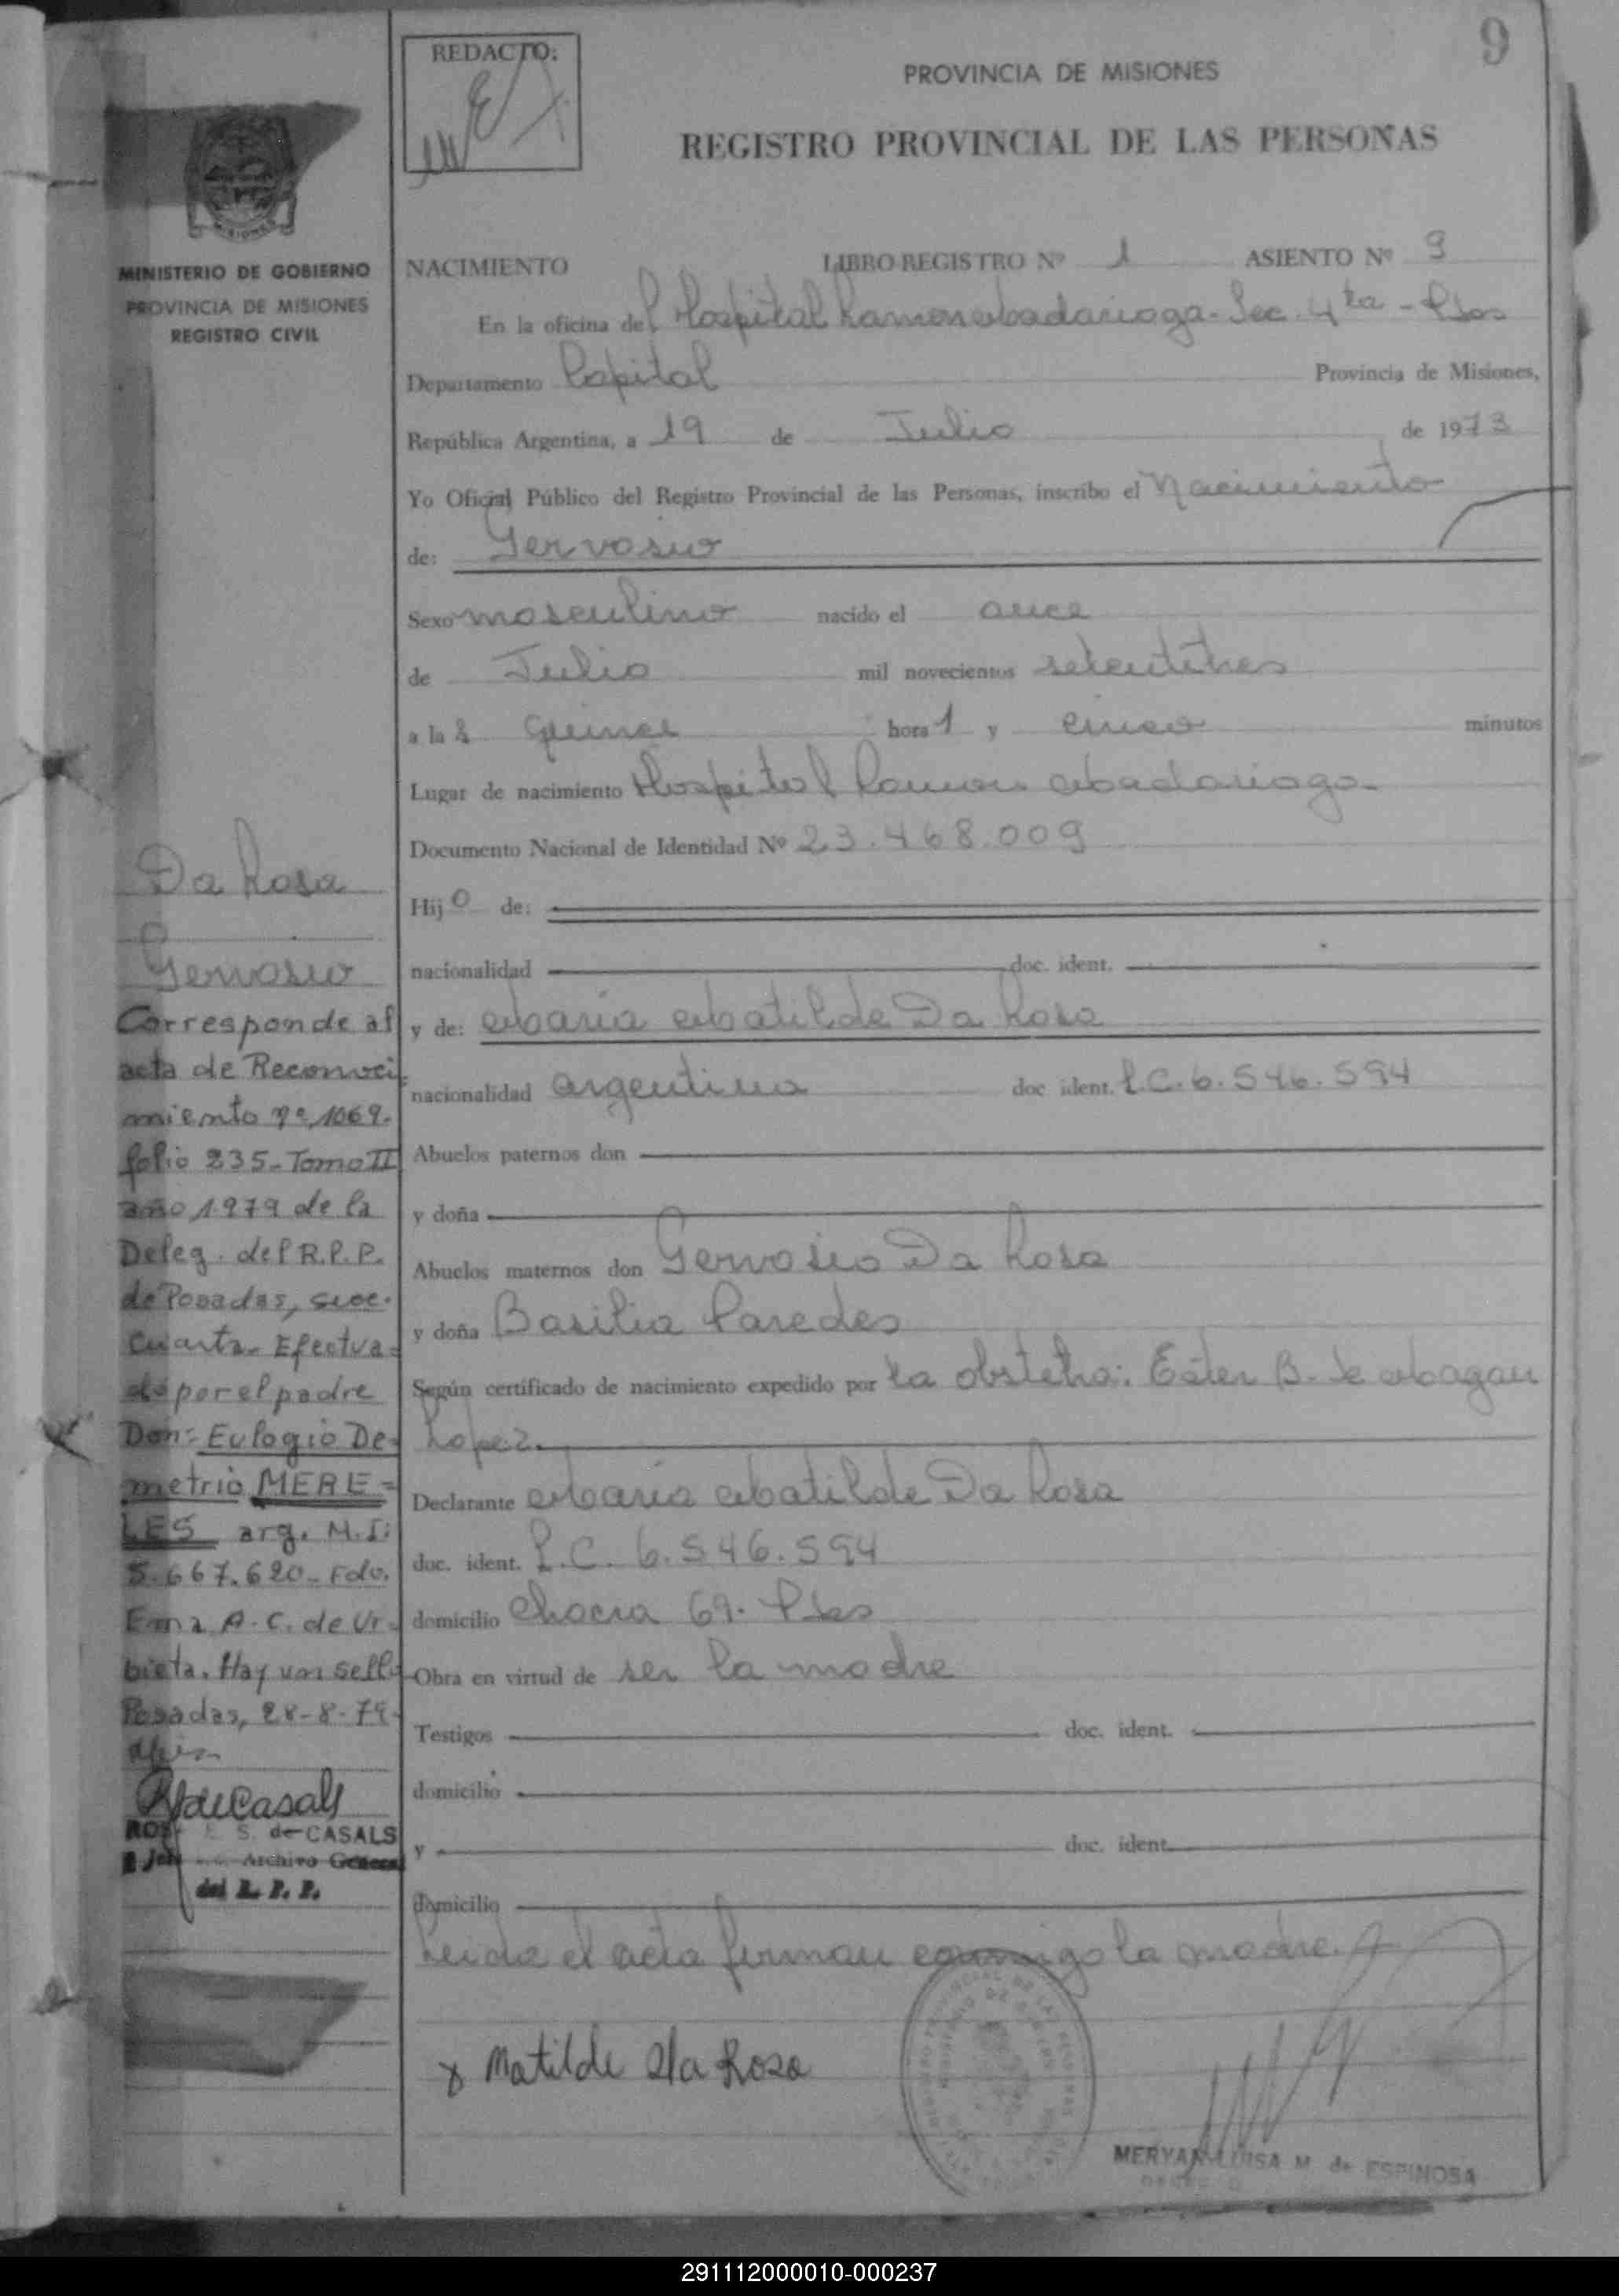 9
REDACTO:
PROVINCIA DE MISIONES
REGISTRO PROVINCIAL DE LAS PERSONAS
MISIONES
MINISTERIO DE GOBIERNO
PROVINCIA DE MISIONES
REGISTRO CIVIL
NACIMIENTO LIBRO REGISTRO Nº 1 ASIENTO Nº 9
En la oficina del Hospital Ramon Madariaga - Sec. 4ta - Pdas
Departamento Capital Provincia de Misiones,
República Argentina, a 19 de Julio de 1973
Yo Oficial Público del Registro Provincial de las Personas, inscribo el Nacimiento
de: Gervasio
Sexo masculino nacido el once
de Julio mil novecientos setentitres
a las quince hora 1 y cinco minutos
Lugar de nacimiento Hospital Ramon Madariaga
Documento Nacional de Identidad Nº 23.468.009
Hijo de:
nacionalidad doc. ident.
y de: Maria Matilde Da Rosa
nacionalidad argentina doc. ident. L.C. 6.546.594
Abuelos paternos don
y doña
Abuelos maternos don Gervasio Da Rosa
y doña Basilia Paredes
Según certificado de nacimiento expedido por la obstetra: Ester B. de
Lopez.
Declarante Maria Matilde Da Rosa
doc. ident. L.C. 6.546.594
domicilio Chacra 69. Pdas
Obra en virtud de ser la madre
Testigos doc. ident.
domicilio
y doc. ident.
domicilio
Leida el acta firman conmigo la madre.
x Matilde Da Rosa
MERYAN LUISA M. de ESPINOSA
Da Rosa
Gervasio
Corresponde al
acta de Reconoci-
miento nº 1069.
folio 235 - Tomo II
año 1979 de la
Deleg. del R.P.P.
de Posadas, secc.
cuarta - Efectua-
do por el padre
Don: Eulogio De-
metrio MERE=
LES arg. M.I:
5.667.620 - Fdo.
Ema A. C. de Ur-
bieta. Hay un sello
Posadas, 28-8-79-
RdeCasals
S. de CASALS
Archivo General
del R. P. P.
291112000010-000237